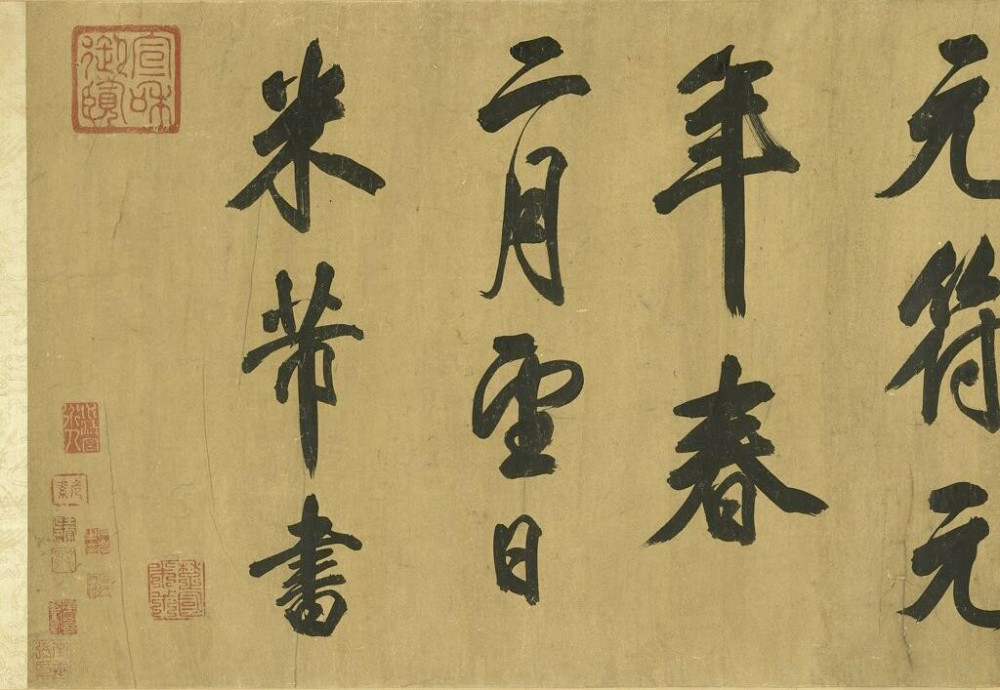 元符元
年春
二月望日
米芾書
宣和
御覽